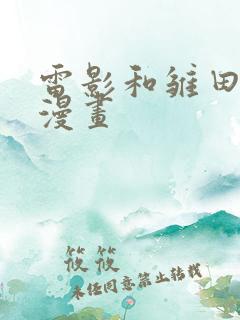 電影和雏田
漫畫
筱筱
未经同意禁止转载